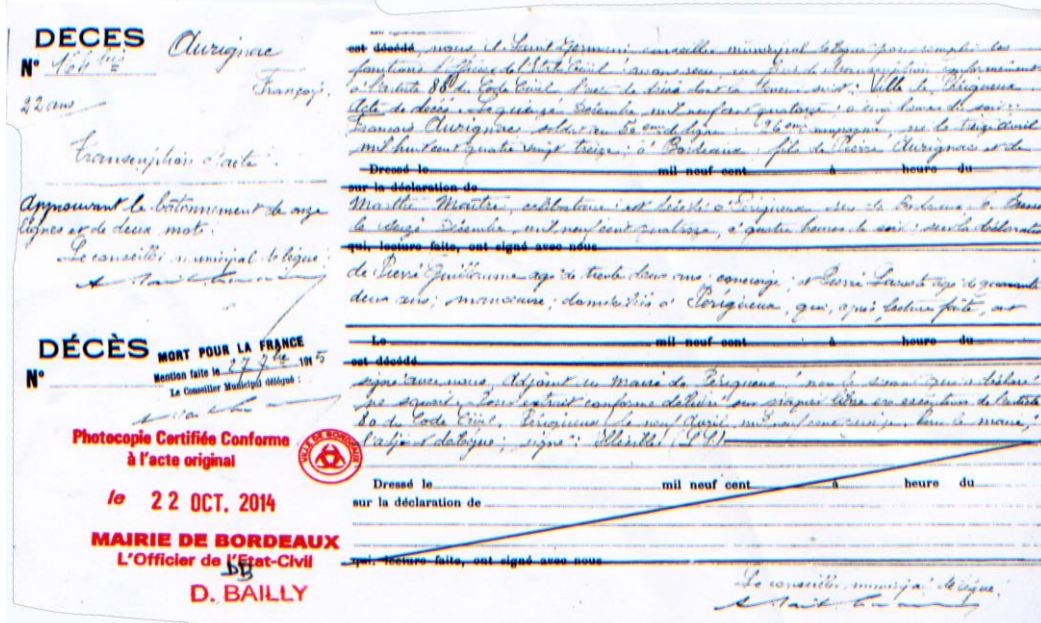 DECES
N° 164 bis
Aurignac
François
22 ans
Transcription d'acte
Approuvant le bâtonnement de onze
lignes et de deux mots.
Le conseiller municipal délégué :
DÉCÈS
N°
MORT POUR LA FRANCE
Mention faite le 27 7bre 1915
Le Conseiller Municipal délégué :
Photocopie Certifiée Conforme
à l'acte original
VILLE DE BORDEAUX
le 22 OCT. 2014
MAIRIE DE BORDEAUX
L'Officier de l'Etat-Civil
D. BAILLY
est décédé, nous conseiller municipal délégué pour remplir les
fonctions d'officier de l'Etat Civil avons transcription conformément
à l'article 88 du Code Civil l'acte de décès dont la teneur suit : Ville de Périgueux
Acte de décès Le quinze Décembre mil neuf cent quatorze à cinq heures du soir :
François Aurignac soldat au 50 eme de ligne 26eme compagnie, né le treize avril
mil huit cent quatre vingt treize ; à Bordeaux fils de Pierre Aurignac et de
Dressé le mil neuf cent à heure du
sur la déclaration de
Marthe célibataire est décédé à Périgueux rue de Bordeaux
le Décembre, mil neuf cent quatorze, à quatre heures du soir : sur la déclaration
qui, lecture faite, ont signé avec nous
de Pierre Guillaume âgé de trente deux ans ; concierge ; et Pierre âgé de quarante
deux ans ; manoeuvre ; domiciliés à Périgueux, qui, après lecture faite, ont
Le mil neuf cent à heure du
est décédé
signé avec nous, Adjoint au maire de Périgueux ; non le second qui a déclaré
ne Pour extrait conforme délivré sur papier libre en exécution de l'article
80 du Code Civil. Périgueux le neuf avril, mil neuf cent Pour le maire,
l'adjoint délégué ; signé :
Dressé le mil neuf cent à heure du
sur la déclaration de
qui, lecture faite, ont signé avec nous
Le conseiller municipal délégué :